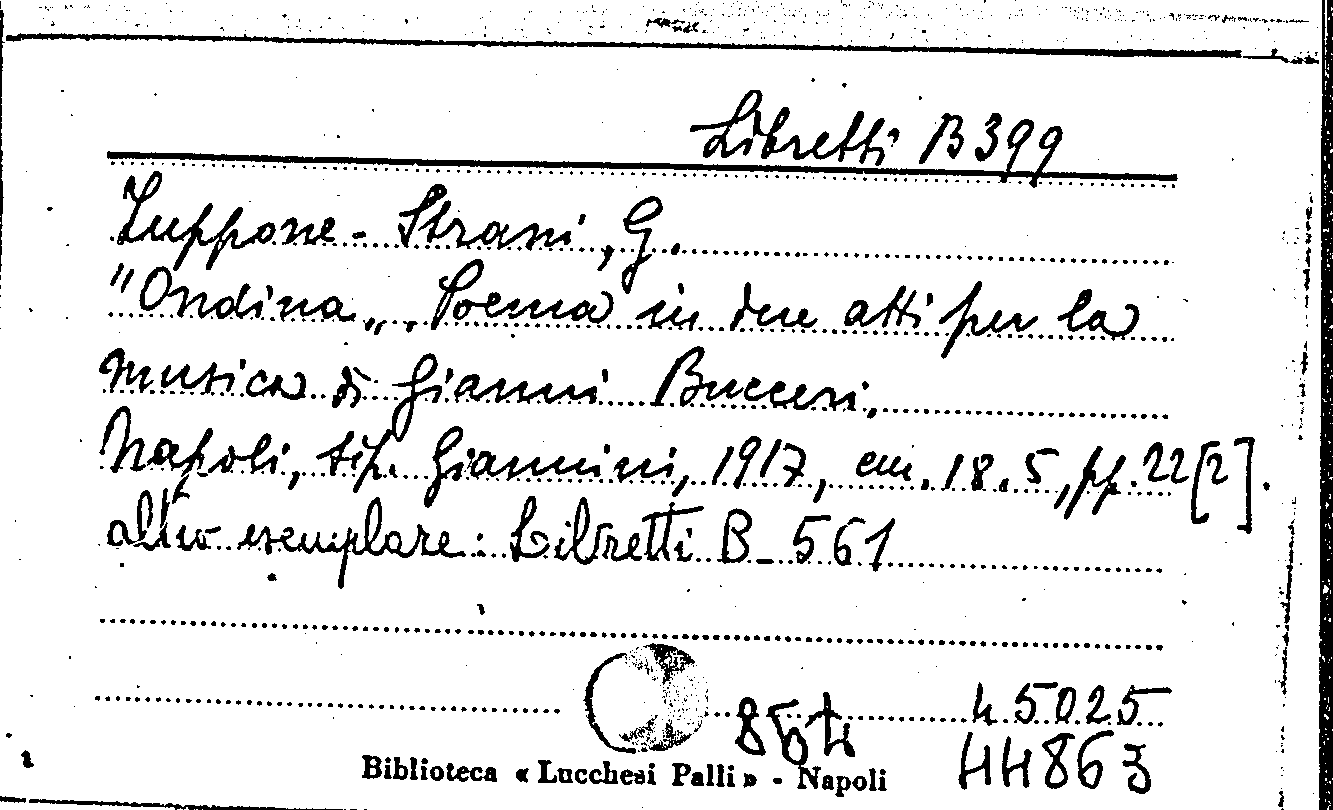 Libretti B 399
Zuppone-Strani, G.
"Ondina„. Poema in due atti per la
musica di Gianni Bucceri.
Napoli, tip. Giannini, 1917, cm. 18.5, pp. 22[2].
altro esemplare: Libretti B_561
45025
44863
Biblioteca « Lucchesi Palli » - Napoli